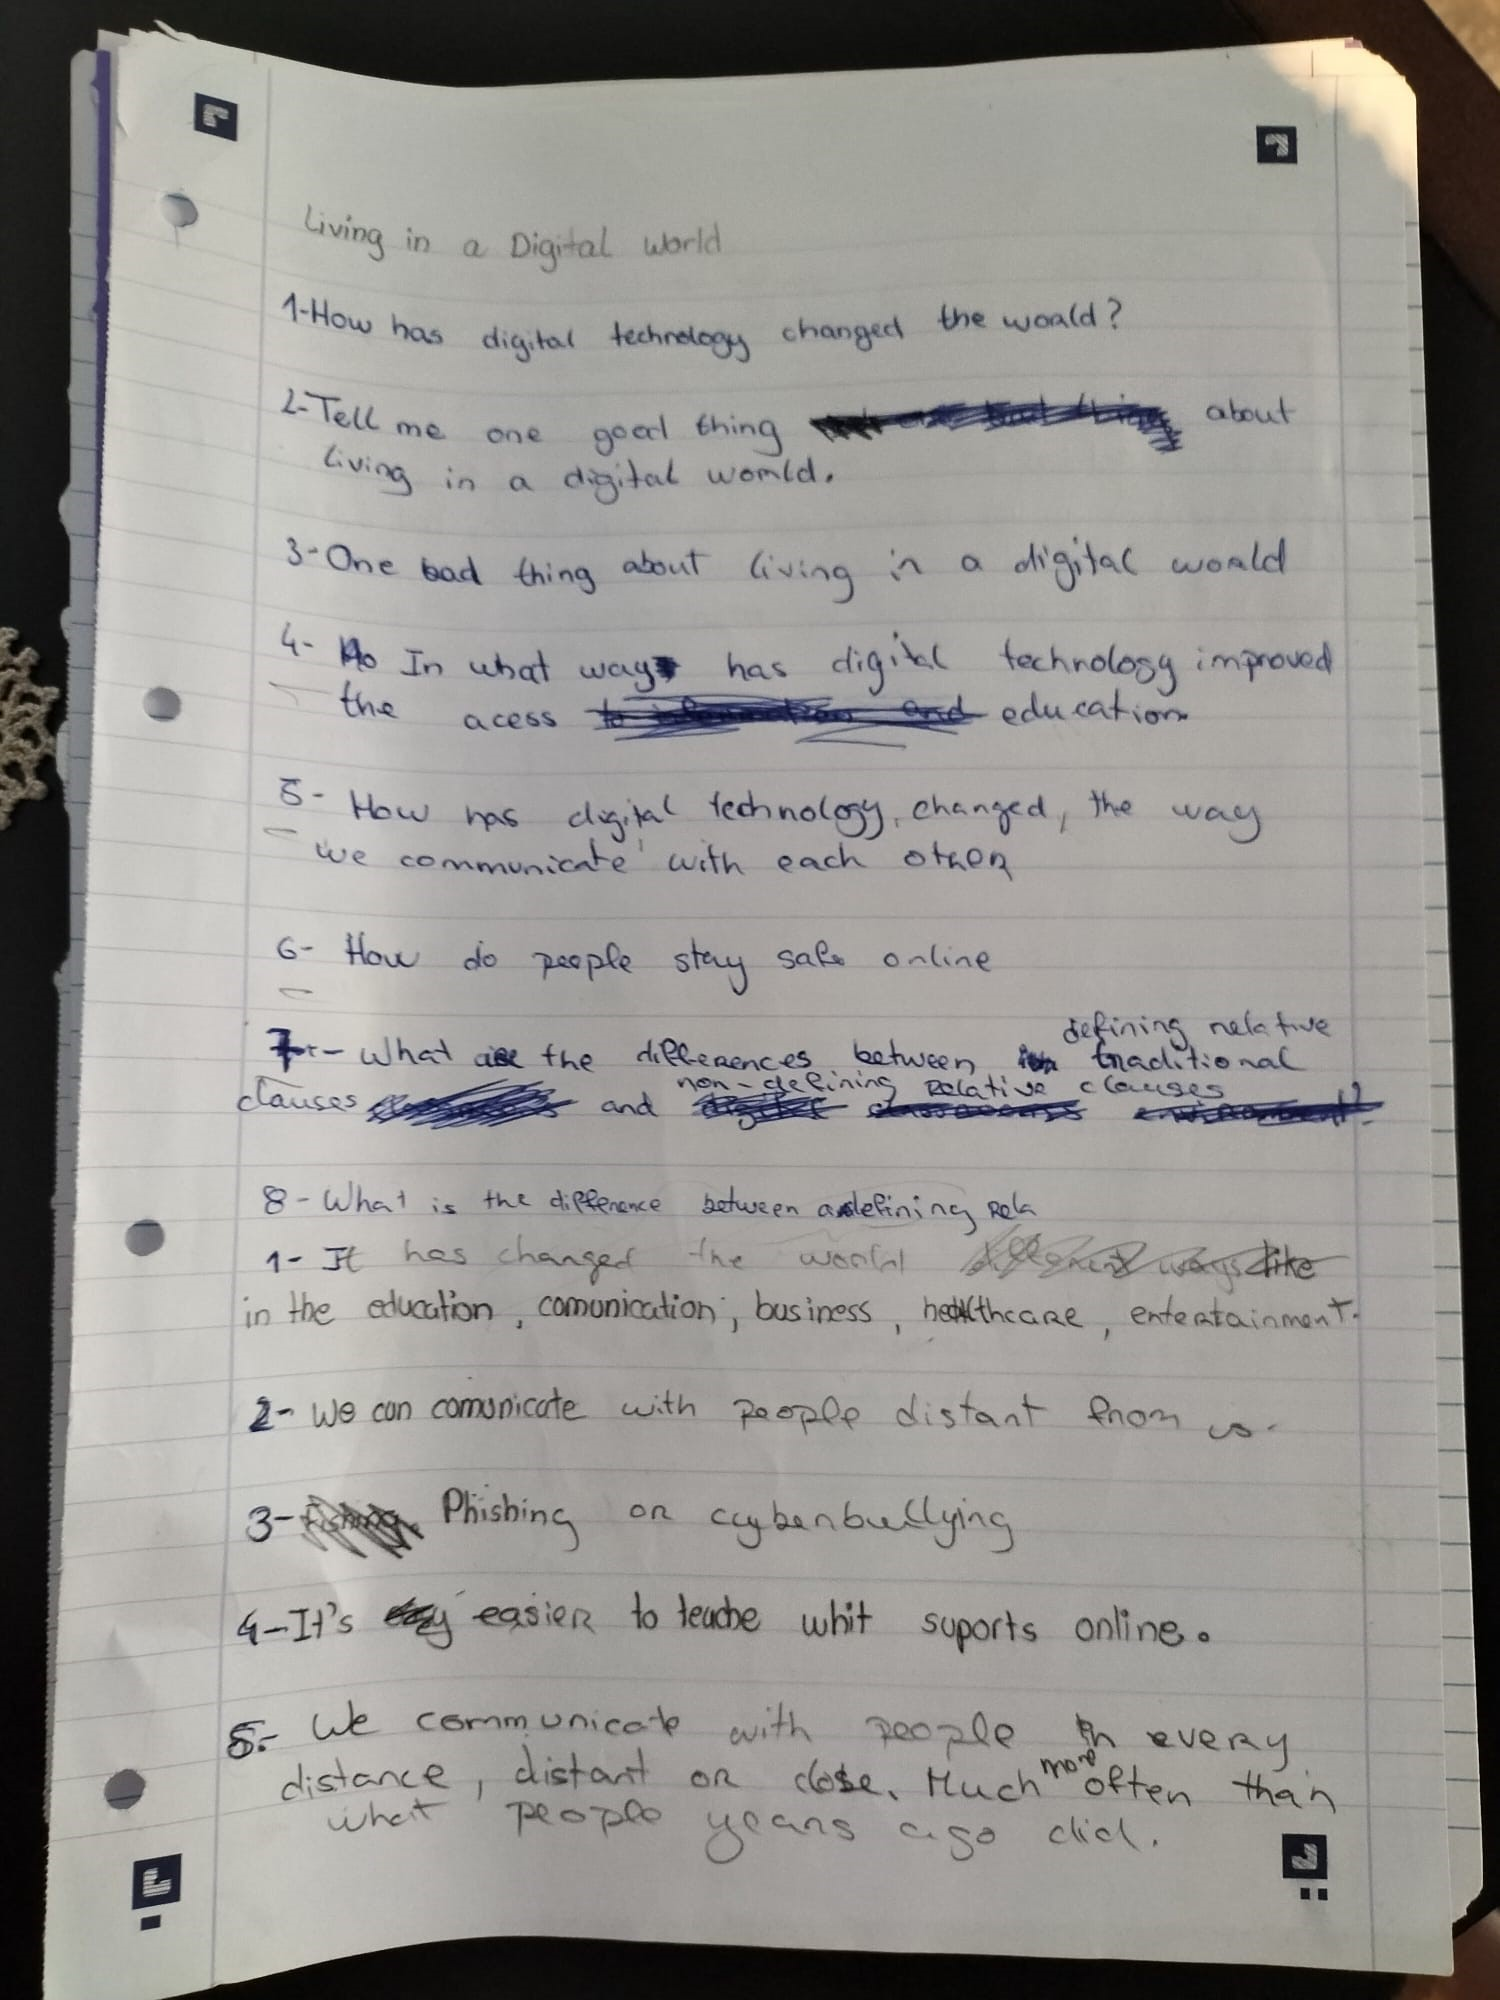 Living in a Digital World
1-How has digital technology changed the world?
2-Tell me one good thing about
living in a digital world.
3-One bad thing about living in a digital world
4- In what way has digital technology improved
the acess education
5- How has digital technology, changed, the way
we communicate with each other
6- How do people stay safe online
defining relative
7- What are the differences between traditional
non-defining relative clauses
clauses and
8-What is the difference between a defining rela
1- It has changed the world like
in the education, comunication, business, healthcare, entertainment.
2- We can comunicate with people distant from us.
3- Phishing or cyberbullying
4-It's easier to teache whit suports online.
5- We communicate with people in every
distance, distant or close. Much more often than
what people years ago did.